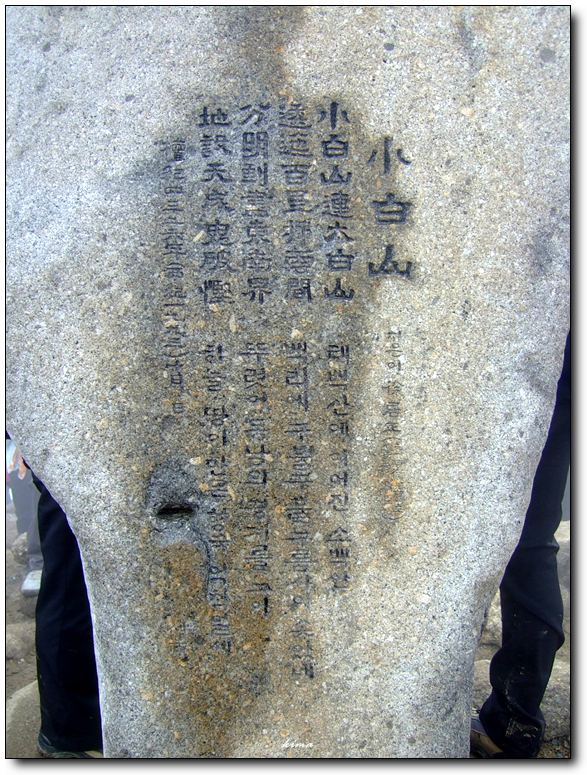 小白山
小白山連太白山 태백산에 이어진 소백산
逶迤百里揷雲間 백리에 구불구불 구름사이 솟았네
分明劃盡東南界 뚜렷이 동남의 경계를 그어
地設天成鬼破慳 하늘 땅이 만든 형국 억척일세
kima